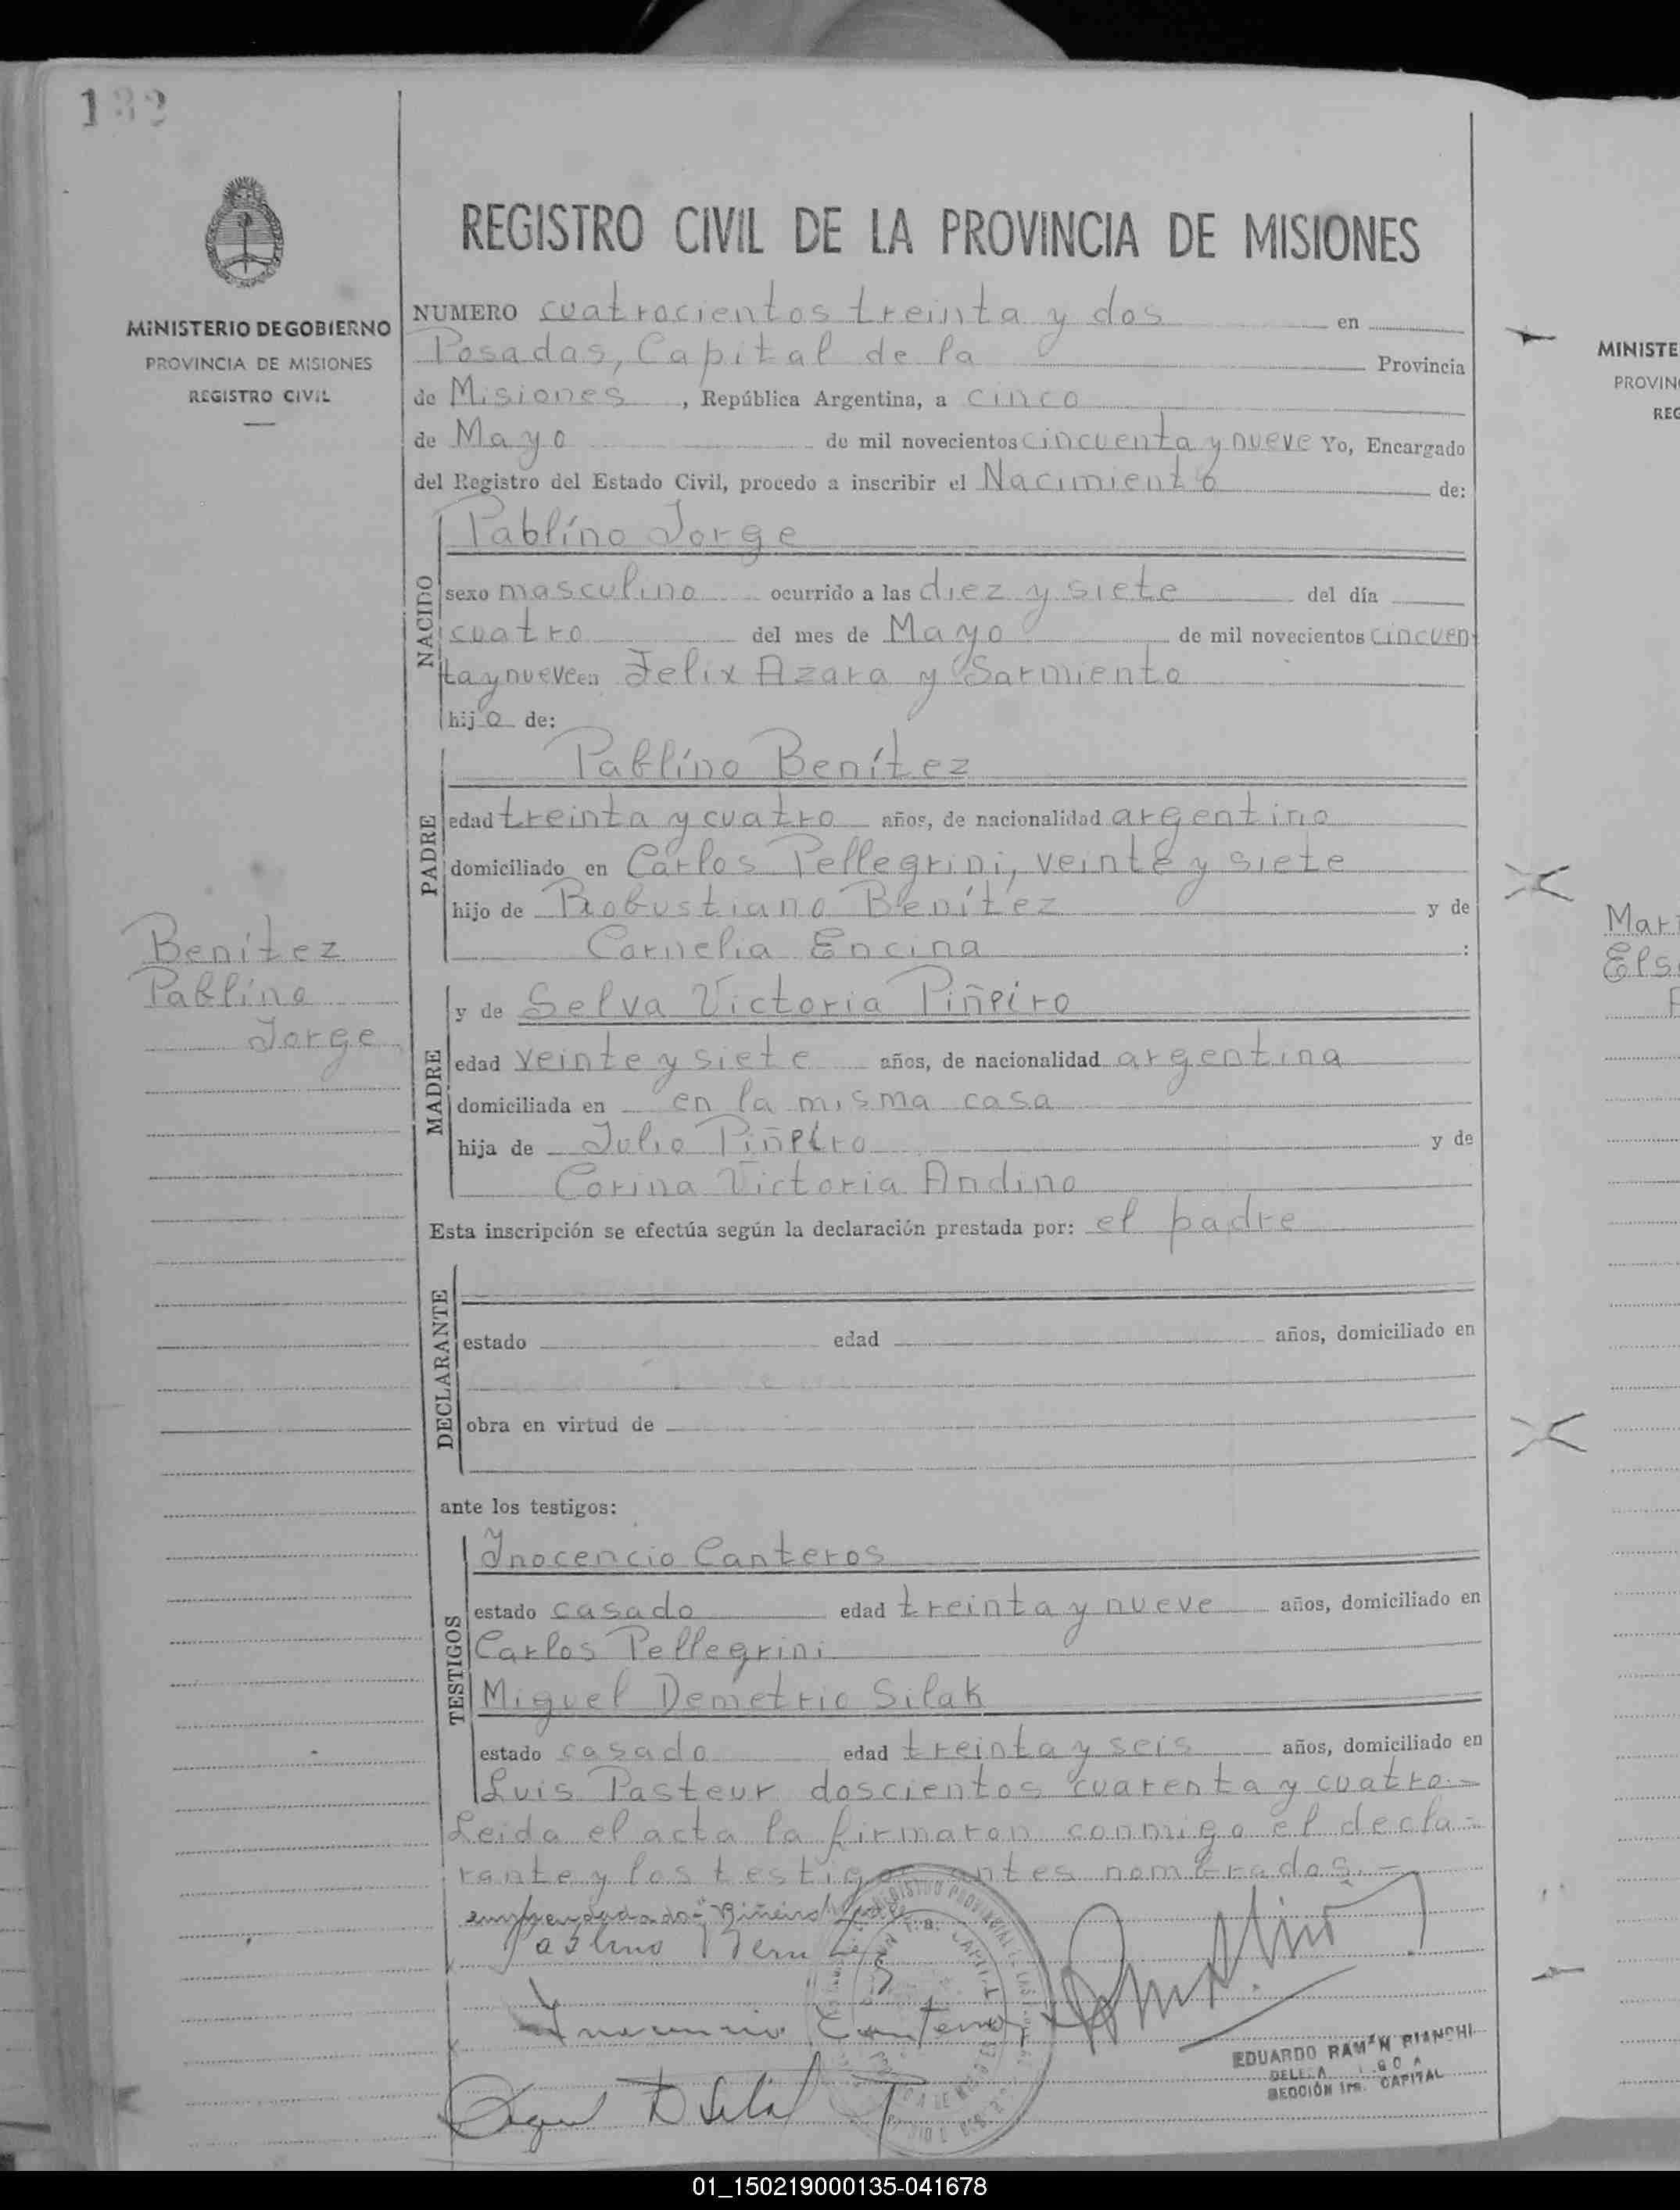 132
MINISTERIO DE GOBIERNO
PROVINCIA DE MISIONES
REGISTRO CIVIL
REGISTRO CIVIL DE LA PROVINCIA DE MISIONES
NUMERO cuatrocientos treinta y dos en
Posadas, Capital de la Provincia
de Misiones, República Argentina, a cinco
de Mayo de mil novecientos cincuenta y nueve Yo, Encargado
del Registro del Estado Civil, procedo a inscribir el Nacimiento de:
NACIDO
Pablíno Jorge
sexo masculino ocurrido a las diez y siete del día
cuatro del mes de Mayo de mil novecientos cincuen
ta y nueve en Felix Azara y Sarmiento
hijo de:
PADRE
Pablíno Benítez
edad treinta y cuatro años, de nacionalidad argentino
domiciliado en Carlos Pellegrini, veinte y siete
hijo de Robustiano Benítez y de
Cornelia Encina :
Benítez
Pablíno
Jorge
MADRE
y de Selva Victoria Piñeiro
edad veinte y siete años, de nacionalidad argentina
domiciliada en en la misma casa
hija de Julio Piñeiro y de
Corina Victoria Andino
Esta inscripción se efectúa según la declaración prestada por: el padre
DECLARANTE
estado edad años, domiciliado en
obra en virtud de
ante los testigos:
TESTIGOS
Inocencio Canteros
estado casado edad treinta y nueve años, domiciliado en
Carlos Pellegrini
Miguel Demetrio Silak
estado casado edad treinta y seis años, domiciliado en
Luis Pasteur doscientos cuarenta y cuatro.-
Leida el acta la firmaron conmigo el decla-
rante y los testigos antes nombrados.-
enmendado: "Piñeiro"
Pablino Benitez
Inocencio Canteros
Miguel D Silak
EDUARDO RAMON BIANCHI
SECCIÓN 1ra. CAPITAL
MINISTE
PROVIN
REG
Mart
Elsa
01_150219000135-041678